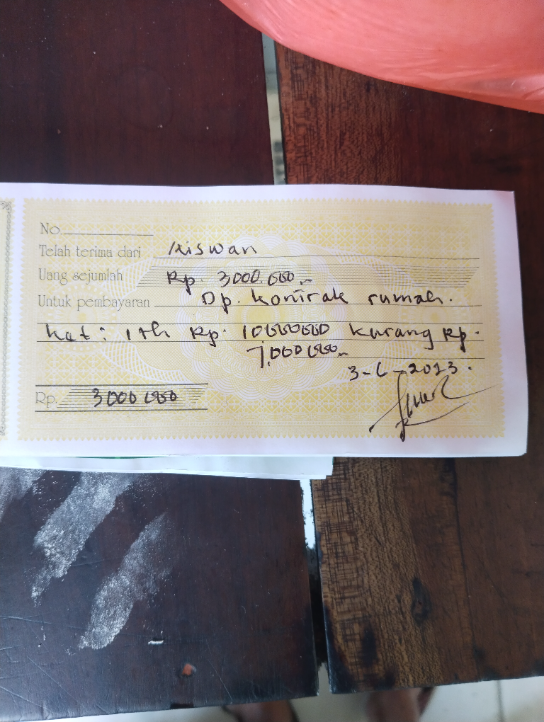 No.
Telah terima dari Riswan
Uang sejumlah Rp. 3000.000,-
Untuk pembayaran Dp. kontrak rumah.
ket: 1 th Rp. 10000000 kurang Rp.
7,000 000,-
3-6-2023.
Rp. 3000 000